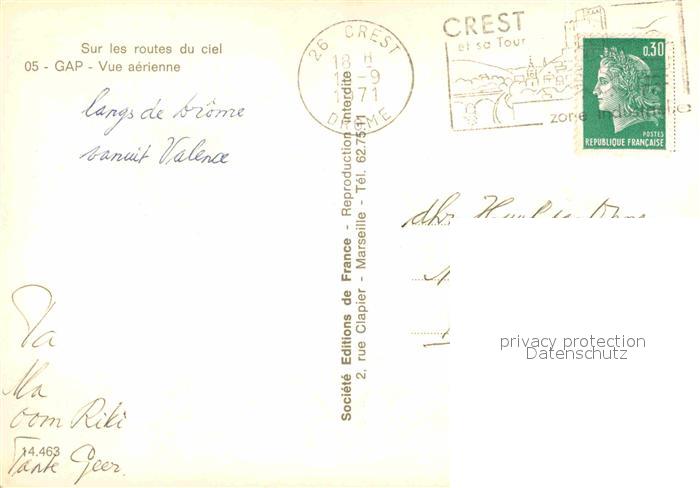 Sur les routes du ciel
05 - GAP - Vue aérienne
langs de drôme
vanuit Valence
Pa
Ma
oom Riki
Tante Geer
14.463
Société Editions de France - Reproduction interdite
2, rue Clapier - Marseille - Tél. 62.75.11
26 CREST
18 H
-9
1971
DROME
CREST
et sa Tour
zone industrielle
0,30
POSTES
REPUBLIQUE FRANÇAISE
privacy protection
Datenschutz